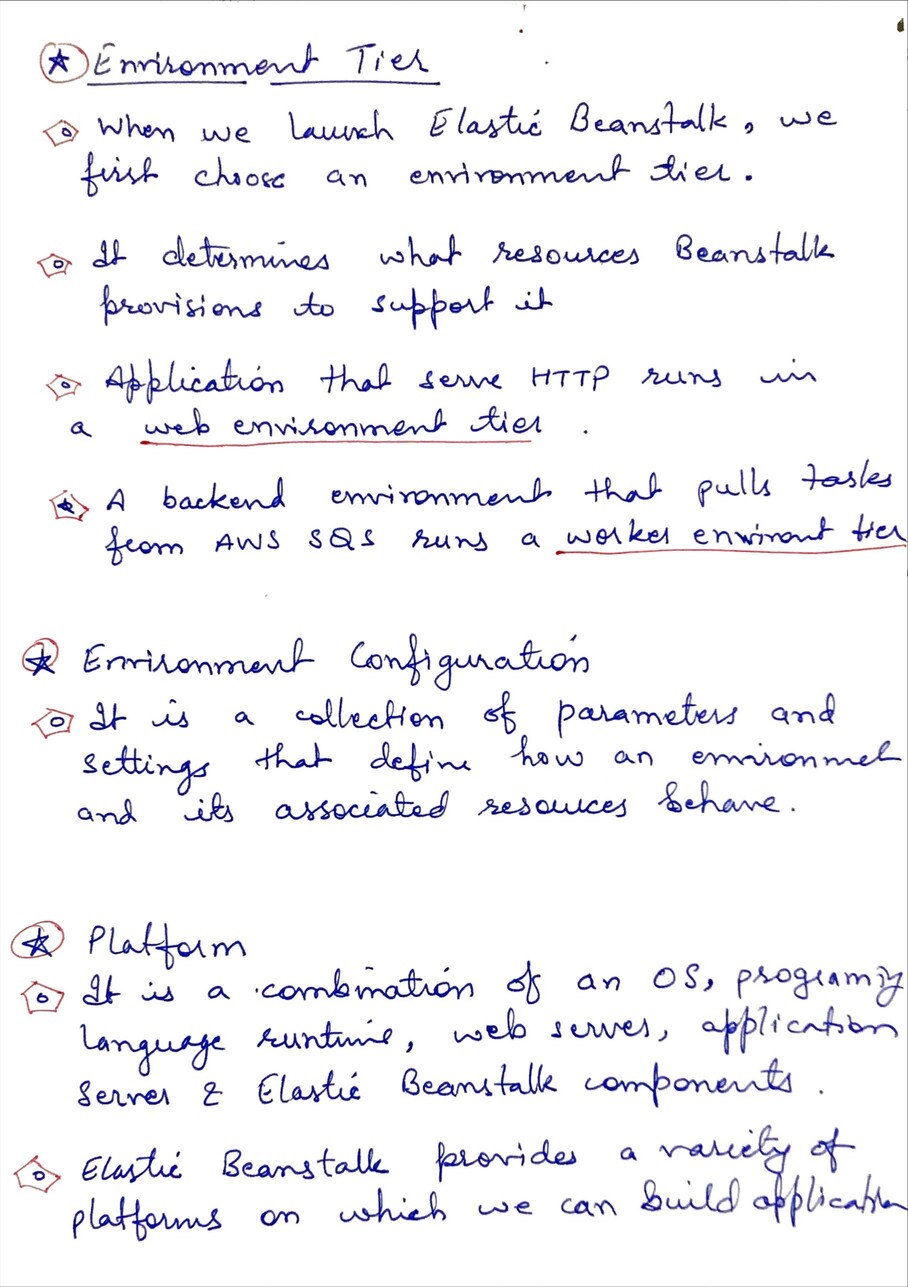 Environment Tier
When we launch Elastic Beanstalk, we
first choose an environment tier.
It determines what resources Beanstalk
provisions to support it
Application that serve HTTP runs in
a web environment tier.
A backend environment that pulls tasks
from AWS SQS runs a worker environt tier
Environment Configuration
It is a collection of parameters and
settings that define how an environmet
and its associated resources behave.
Platform
It is a combination of an OS, programig
language runtime, web server, application
Server & Elastic Beanstalk components.
Elastic Beanstalk provides a variety of
platforms on which we can build application